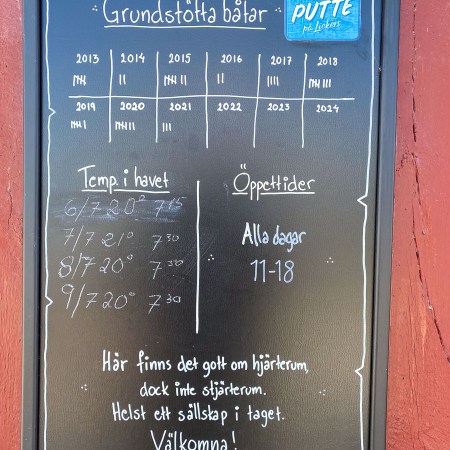 Grundstötta båtar
PUTTE
på Läckerö
2013 2014 2015 2016 2017 2018
2019 2020 2021 2022 2023 2024
Temp. i havet
6/7 20° 7 15
7/7 21° 7 30
8/7 20° 7 30
9/7 20° 7 30
Öppettider
Alla dagar
11-18
Här finns det gott om hjärterum,
dock inte stjärterum.
Helst ett sällskap i taget.
Välkomna!